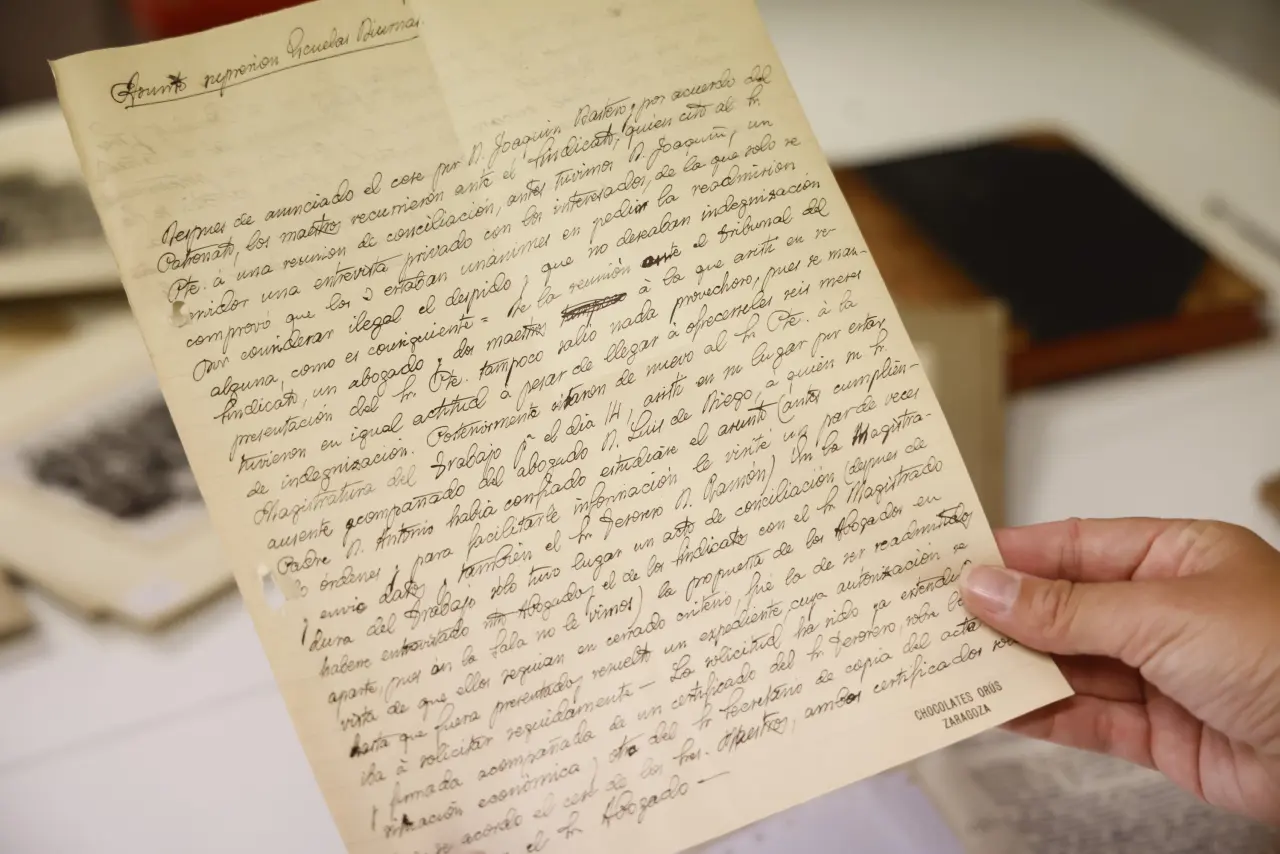 Asunto supresion Escuelas Diurnas
Despues de anunciado el cese por D. Joaquin Bastero, por acuerdo del
Patronato, los maestros recurrieron ante el Sindicato, quien citó al Sr.
Pte. á una reunion de conciliación, antes tuvimos D. Joaquin, y un
servidor una entrevista privada con los interesados, de la que solo se
comprovó que los 3 estaban unánimes en pedir la readmision
por considerar ilegal el despido y que no deseaban indegnización
alguna, como es consiguiente = De la reunión ante el Tribunal del
Sindicato, un abogado y dos maestros á la que asistí en re-
presentación del Sr. Pte. tampoco salió nada provechoso, pues se man-
tuvieron en igual actitud a pesar de llegar á ofrecerles seis meses
de indegnización. Posteriormente citaron de nuevo al Sr. Pte. á la
Magistratura del Trabajo pª el dia 14, asistí en su lugar por estar
ausente acompañado del abogado D. Luis de Diego, a quién su Sr.
Padre D. Antonio habia confiado estudiase el asunto (antes cumplien-
do órdenes y para facilitarle información le visité un par de veces
y envié datos y también el Sr. Tesorero D. Ramón) En la Magistra-
dura del Trabajo sólo tuvo lugar un acto de conciliación (despues de
haberse entrevistado Abogado y el de los Sindicatos con el Sr. Magistrado
aparte, pues en la Sala no le vimos) la propuesta de los Abogados en
vista de que ellos seguian en cerrado criterio, fué la de ser readmitidos
hasta que fuera presentado y resuelto un expediente cuya autorización se
iba á solicitar seguidamente — La solicitud ha sido ya extendida
y firmada acompañada de un certificado del Sr. Tesorero, sobre
situación económica y otro del Sr. Secretario de copia del acta
se acordo el cese de los Srs. Maestros, ambos certificados
el Sr. Abogado —
CHOCOLATES ORÚS
ZARAGOZA